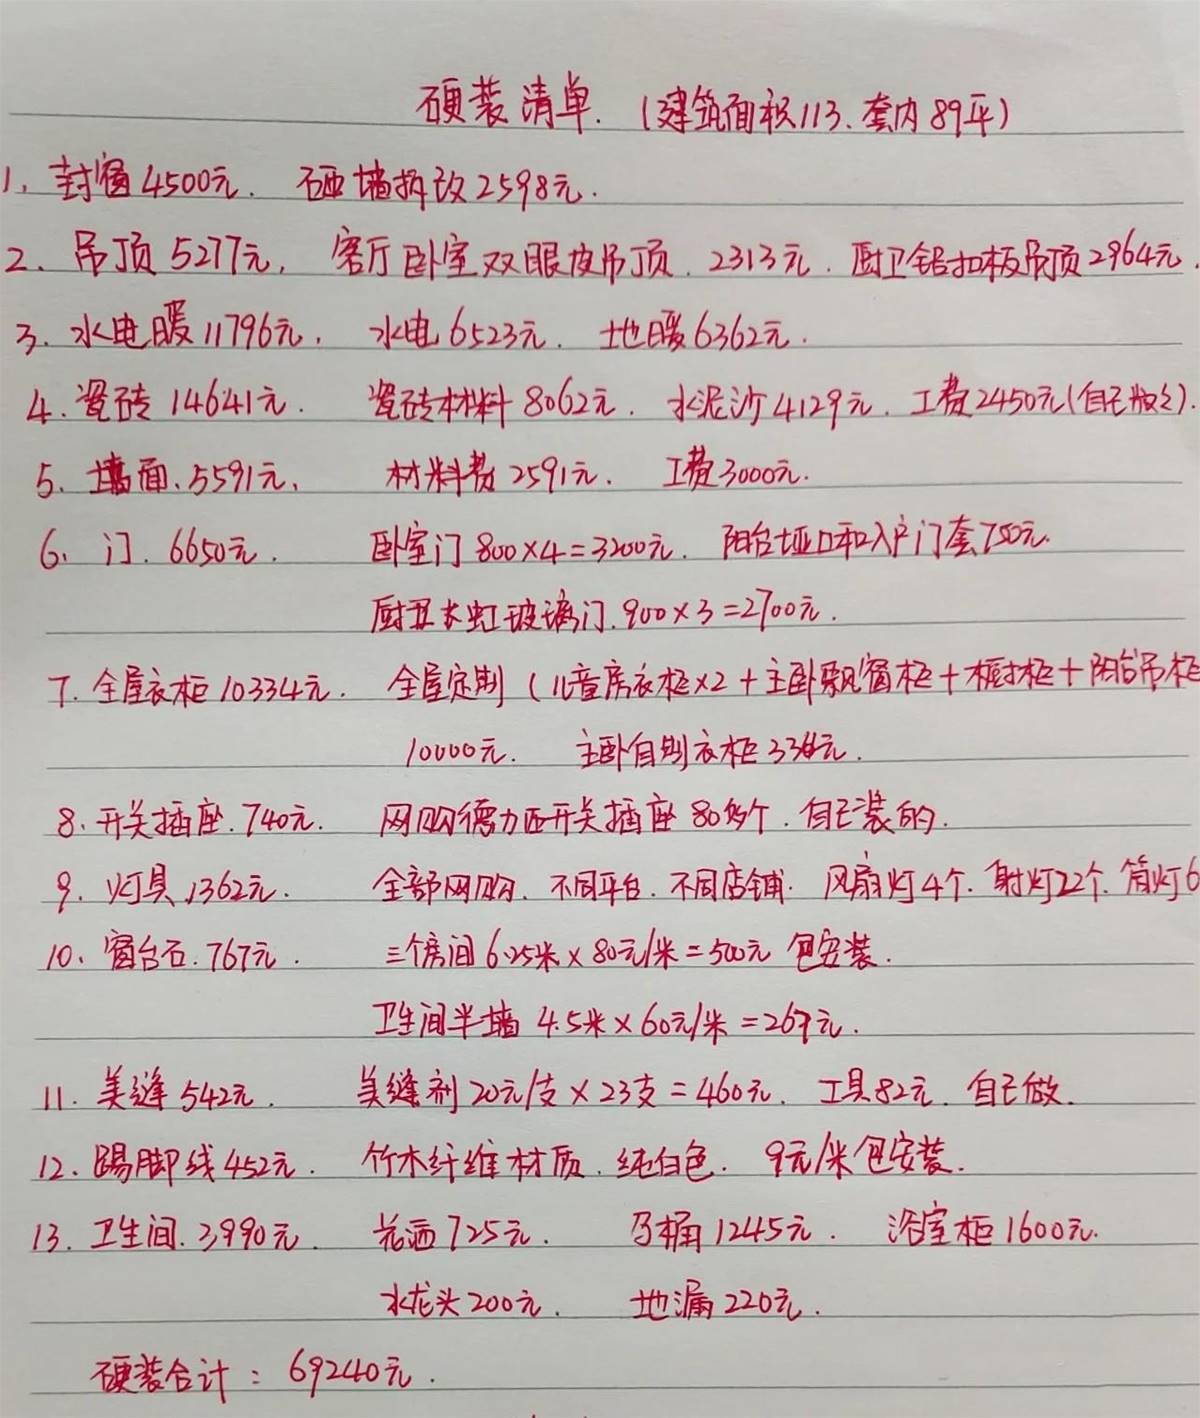 硬装清单. (建筑面积113、套内89平)
1、封窗4500元. 砸墙拆改2598元.
2、吊顶5277元, 客厅卧室双眼皮吊顶. 2313元. 厨卫铝扣板吊顶2964元.
3、水电暖11796元, 水电6523元. 地暖6362元.
4.瓷砖14641元. 瓷砖材料8062元. 水泥沙4129元. 工费2450元(自己做).
5、墙面.5591元, 材料费2591元. 工费3000元.
6、门.6650元. 卧室门800×4=3200元. 阳台垭口和入户门套750元.
厨卫长虹玻璃门.900×3=2700元.
7.全屋衣柜10334元. 全屋定制(儿童房衣柜×2+主卧飘窗柜+橱柜+阳台吊柜
10000元. 主卧自制衣柜334元.
8.开关插座.740元. 网购德力西开关插座80多个.自己装的.
9、灯具1362元. 全部网购.不同平台.不同店铺. 风扇灯4个.射灯22个.筒灯6
10、窗台石.767元. 三个房间6.25米×80元/米=500元 包安装.
卫生间半墙 4.5米×60元/米=267元.
11.美缝542元. 美缝剂20元/支×23支=460元. 工具82元.自己做.
12.踢脚线452元. 竹木纤维材质.纯白色. 9元/米包安装.
13.卫生间.3990元. 花洒725元. 马桶1245元. 浴室柜1600元.
水龙头200元. 地漏220元.
硬装合计:69240元.